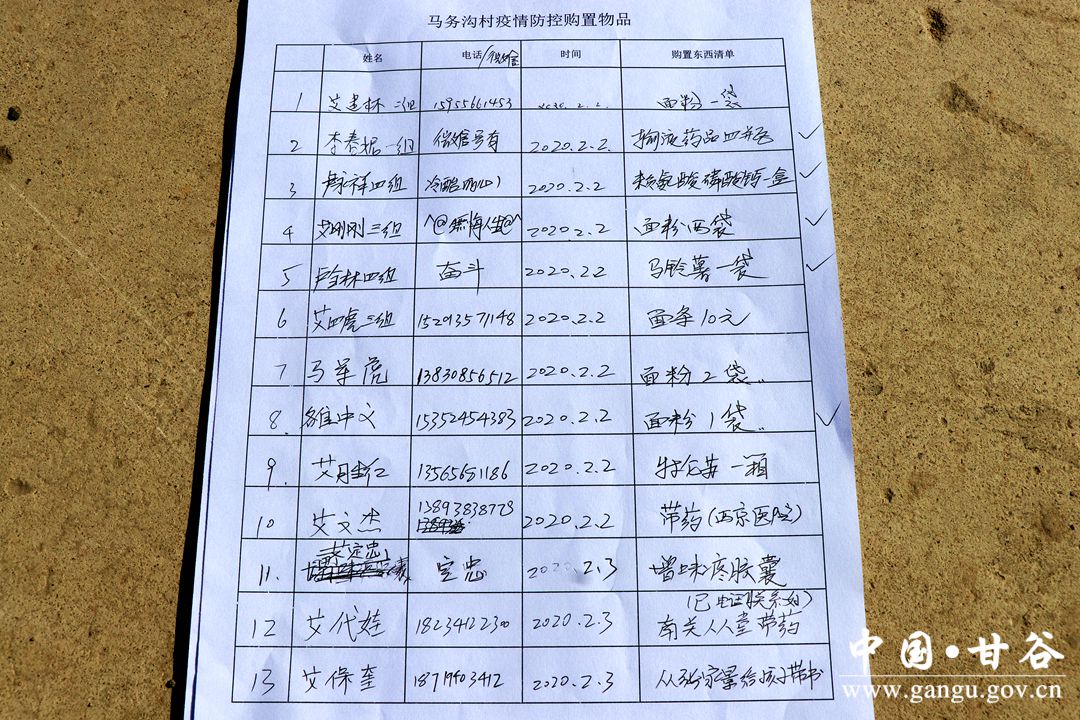 马务沟村疫情防控购置物品
姓名 电话/微信 时间 购置东西清单
1 艾建林 二组 15955661453 2020.2.2. 面粉一袋
2 李春据一组 微信号有 2020.2.2. 输液药品四并包
3 四组 2020.2.2 赖氨酸磷酸钙一盒
4 艾刚刚三组 ^@无悔人生@^ 2020.2.2 面粉两袋
5 四组 奋斗 2020.2.2 马铃薯一袋
6 艾四虎三组 15293571148 2020.2.2 面条10元
7 马军虎 13830856512 2020.2.2 面粉2袋..
8. 中文 15352454383 2020.2.2 面粉1袋..
9. 艾 13565651186 2020.2.2 特仑苏一箱
10 艾文杰 13893838773 2020.2.2 带药(西京医院)
11. 艾定忠 定忠 2020.2.3 增味疼胶囊
12 艾代娃 18234122300 2020.2.3 (已电话联系好)
南关人人堂带药
13 艾保奎 18719403412 2020.2.3 给孩子带书
中国·甘谷
www.gangu.gov.cn